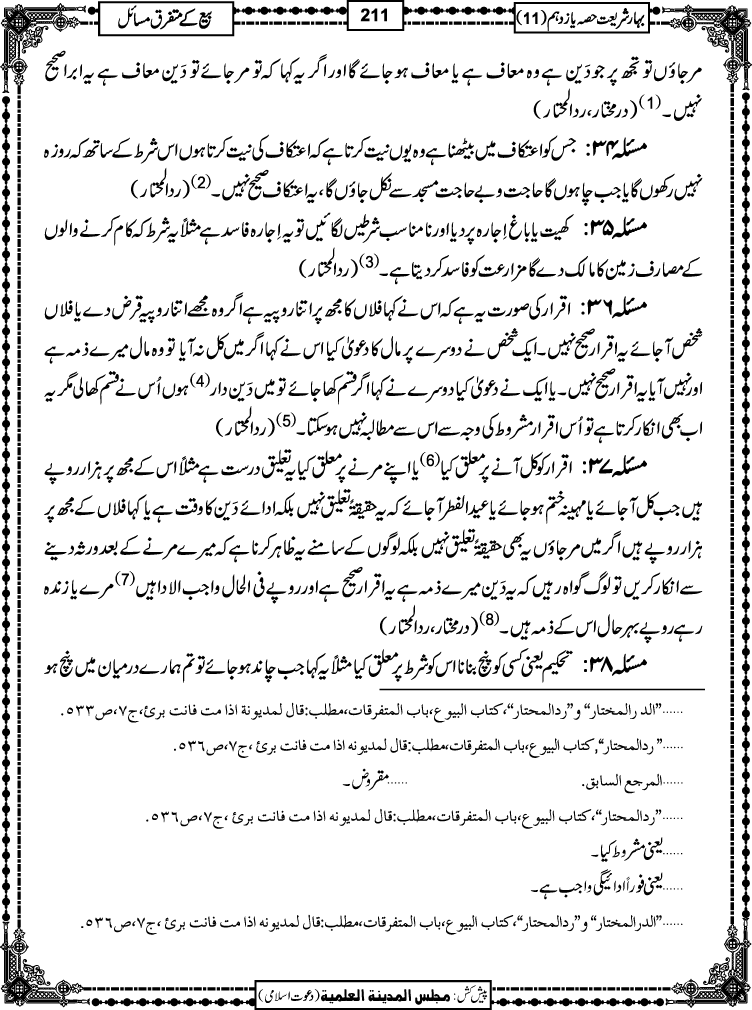 بہارِشریعت حصہ یازدہم (11)
211
بیع کے متفرق مسائل
مرجاؤں تو تجھ پر جو دَین ہے وہ معاف ہے یا معاف ہوجائے گا اور اگر یہ کہا کہ تو مرجائے تو دَین معاف ہے یہ ابرا صحیح
نہیں۔(1) (درمختار، ردالمحتار)
مسئلہ ۳۴: جس کو اعتکاف میں بیٹھنا ہے وہ یوں نیت کرتا ہے کہ اعتکاف کی نیت کرتا ہوں اس شرط کے ساتھ کہ روزہ
نہیں رکھوں گا یا جب چاہوں گا حاجت و بے حاجت مسجد سے نکل جاؤں گا، یہ اعتکاف صحیح نہیں۔(2) (ردالمحتار)
مسئلہ ۳۵: کھیت یا باغ اِجارہ پر دیا اور نامناسب شرطیں لگائیں تو یہ اِجارہ فاسد ہے مثلاً یہ شرط کہ کام کرنے والوں
کے مصارف زمین کا مالک دے گا مزارعت کو فاسد کردیتا ہے۔(3) (ردالمحتار)
مسئلہ ۳۶: اقرار کی صورت یہ ہے کہ اس نے کہا فلاں کا مجھ پر اتنا روپیہ ہے اگر وہ مجھے اتنا روپیہ قرض دے یا فلاں
شخص آجائے یہ اقرار صحیح نہیں۔ ایک شخص نے دوسرے پر مال کا دعویٰ کیا اس نے کہا اگر میں کل نہ آیا تو وہ مال میرے ذمہ ہے
اور نہیں آیا یہ اقرار صحیح نہیں۔ یا ایک نے دعویٰ کیا دوسرے نے کہا اگر قسم کھاجائے تو میں دَین دار(4) ہوں اُس نے قسم کھالی مگر یہ
اب بھی انکار کرتا ہے تو اُس اقرار مشروط کی وجہ سے اس سے مطالبہ نہیں ہوسکتا۔(5) (ردالمحتار)
مسئلہ ۳۷: اقرار کو کل آنے پر معلق کیا(6) یا اپنے مرنے پر معلق کیا یہ تعلیق درست ہے مثلاً اس کے مجھ پر ہزار روپے
ہیں جب کل آجائے یا مہینہ ختم ہوجائے یا عیدالفطر آجائے کہ یہ حقیقۃً تعلیق نہیں بلکہ ادائے دَین کا وقت ہے یا کہا فلاں کے مجھ پر
ہزار روپے ہیں اگر میں مرجاؤں یہ بھی حقیقۃً تعلیق نہیں بلکہ لوگوں کے سامنے یہ ظاہر کرنا ہے کہ میرے مرنے کے بعد ورثہ دینے
سے انکار کریں تو لوگ گواہ رہیں کہ یہ دَین میرے ذمہ ہے یہ اقرار صحیح ہے اور روپے فی الحال واجب الادا ہیں(7) مرے یا زندہ
رہے روپے بہرحال اس کے ذمہ ہیں۔(8) (درمختار، ردالمحتار)
مسئلہ ۳۸: تحکیم یعنی کسی کو پنچ بنانا اس کو شرط پر معلق کیا مثلاً یہ کہا جب چاند ہوجائے تو تم ہمارے درمیان میں پنچ ہو
......”الدرالمختار“ و”ردالمحتار“، کتاب البیوع، باب المتفرقات، مطلب: قال لمدیونہ اذا مت فانت برئ، ج۷، ص۵۳۳.
......” ردالمحتار“، کتاب البیوع، باب المتفرقات، مطلب: قال لمدیونہ اذا مت فانت برئ، ج۷، ص۵۳۶.
......المرجع السابق. ......مقروض۔
......”ردالمحتار“، کتاب البیوع، باب المتفرقات، مطلب: قال لمدیونہ اذا مت فانت برئ، ج۷، ص۵۳۶.
......یعنی مشروط کیا۔
......یعنی فوراً ادائیگی واجب ہے۔
......”الدرالمختار“ و”ردالمحتار“، کتاب البیوع، باب المتفرقات، مطلب: قال لمدیونہ اذا مت فانت برئ، ج۷، ص۵۳۶.
پیش کش: مجلس المدینۃ العلمیۃ (دعوتِ اسلامی)